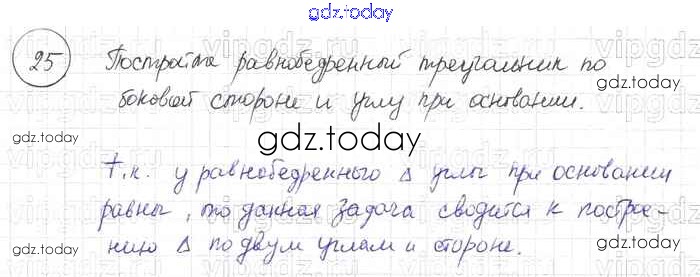 gdz.today
25 Постройте равнобедренный треугольник по
боковой стороне и углу при основании.
gdz.today
gdz.today
gdz.today
Т.к. у равнобедренного Δ углы при основании
равны, то данная задача сводится к построе-
нию Δ по двум углам и стороне.
gdz.today
gdz.today